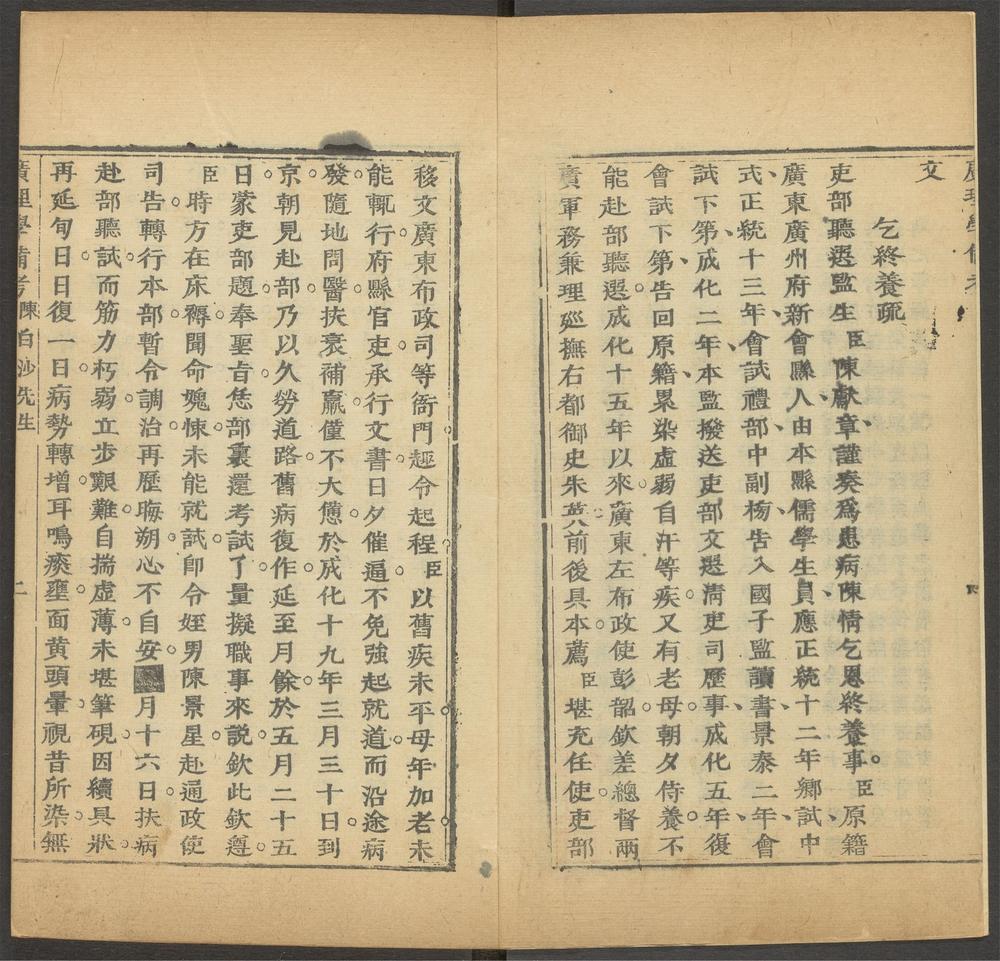 文
乞終養疏
吏部聽選監生臣陳獻章謹奏為患病陳情乞恩終養事臣原籍
廣東廣州府新會縣人由本縣儒學生員應正統十二年鄉試中
式正統十三年會試禮部中副榜告入國子監讀書景泰二年會
試下第成化二年本監撥送吏部文選清吏司歷事成化五年復
會試下第告回原籍累染虛弱自汗等疾又有老母朝夕侍養不
能赴部聽選成化十五年以來廣東左布政使彭韶欽差總督兩
廣軍務兼理廵撫右都御史朱英前後具本薦臣堪充任使吏部
移文廣東布政司等衙門趣令起程臣以舊疾未平母年加老未
能輒行府縣官吏承行文書日夕催逼不免強起就道而沿途病
發隨地問醫扶衰補羸僅不大憊於成化十九年三月三十日到
京朝見赴部乃以久勞道路舊病復作延至月餘於五月二十五
日蒙吏部題奉聖旨恁部裏還考試了量擬職事來說欽此欽遵
臣時方在床褥聞命媿悚未能就試卽令姪男陳景星赴通政使
司告轉行本部暫令調治再歷晦朔心不自安月十六日扶病
赴部聽試而筋力朽弱立步艱難自揣虛薄未堪筆硯因續具狀
再延旬日日復一日病勢轉增耳鳴痰壅面黄頭暈視昔所染無
廣理學備考 陳白沙先生 二